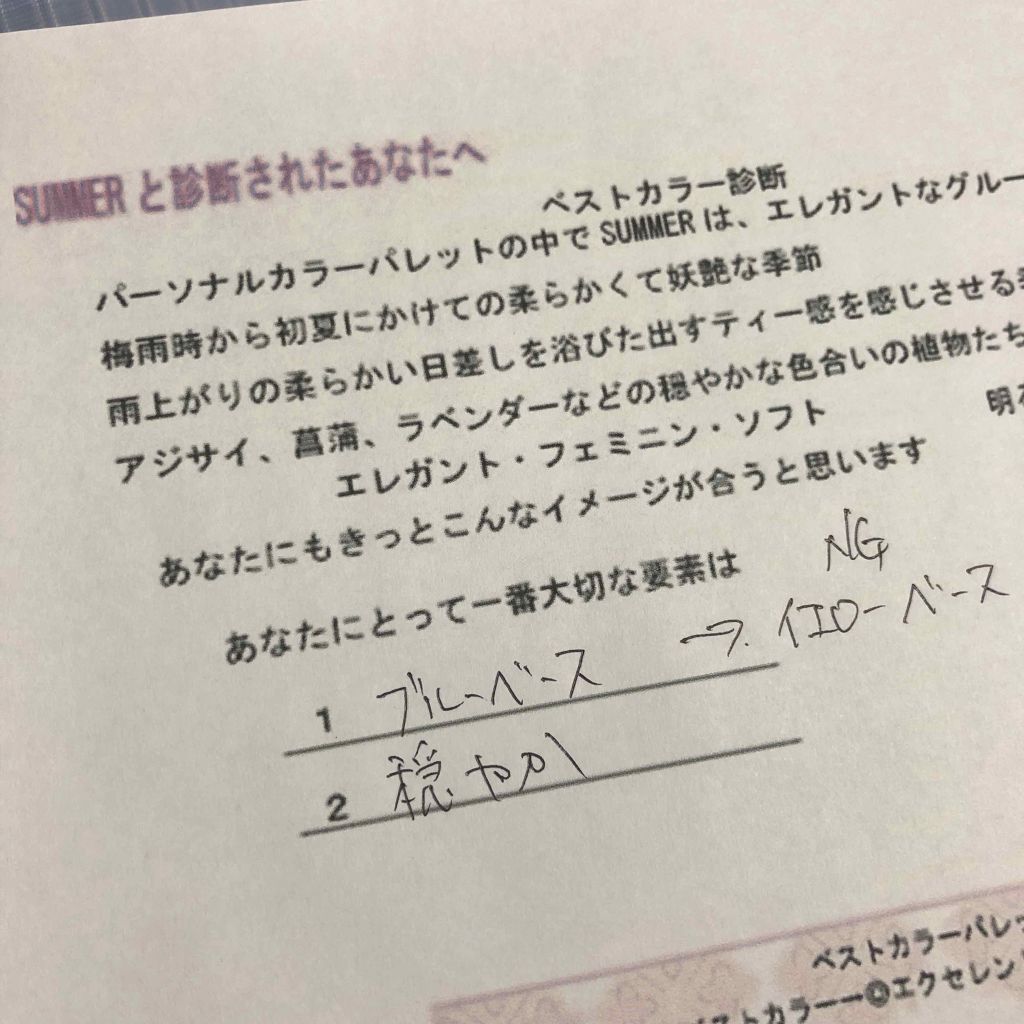 SUMMERと診断されたあなたへ
ベストカラー診断
パーソナルカラーパレットの中でSUMMERは、エレガントなグルー
梅雨時から初夏にかけての柔らかくて妖艶な季節
雨上がりの柔らかい日差しを浴びた出すティー感を感じさせる季
アジサイ、菖蒲、ラベンダーなどの穏やかな色合いの植物たち
エレガント・フェミニン・ソフト
明
あなたにもきっとこんなイメージが合うと思います
あなたにとって一番大切な要素は
NG
1 ブルーベース → イエローベース
2 穏やか
ベストカラーパレッ
ストカラーー◎エクセレン